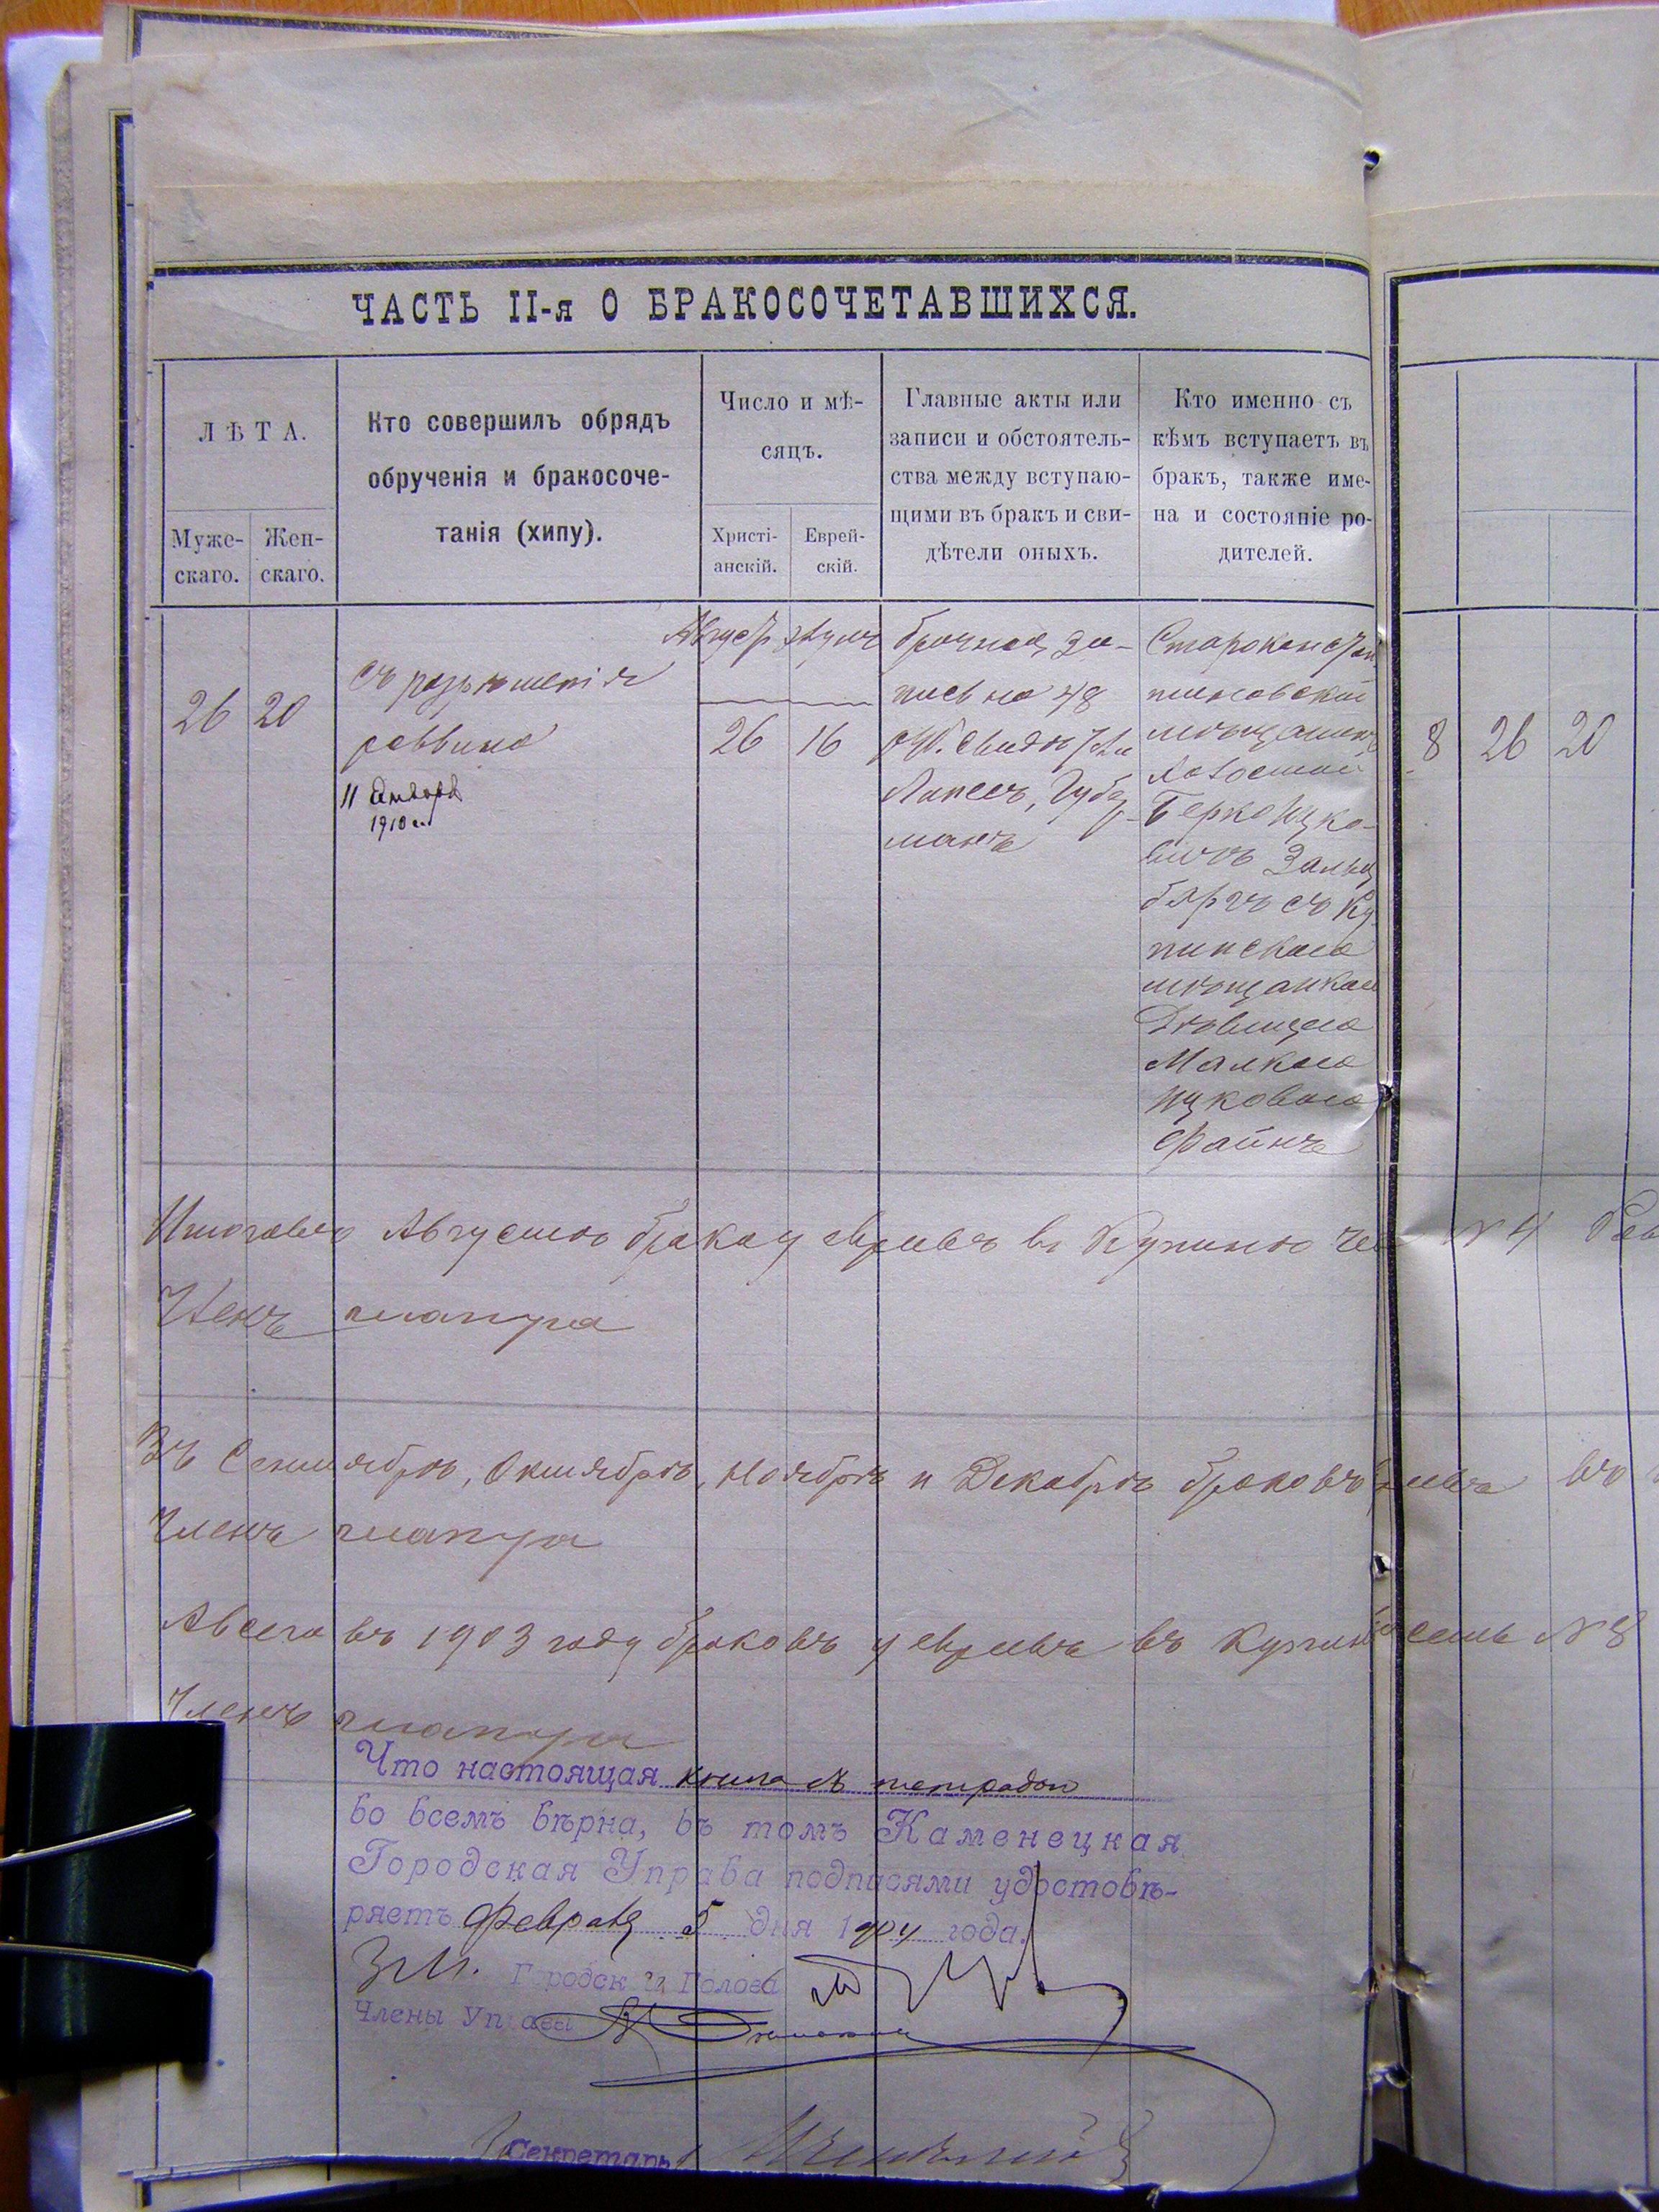 ЧАСТЬ II-я О БРАКОСОЧЕТАВШИХСЯ.
ЛѢТА.
Муже-
скаго.
Жен-
скаго.
Кто совершилъ обрядъ
обрученія и бракосоче-
танія (хипу).
Число и мѣ-
сяцъ.
Христі-
анскій.
Еврей-
скій.
Главные акты или
записи и обстоятель-
ства между вступаю-
щими въ бракъ и сви-
дѣтели оныхъ.
Кто именно съ
кѣмъ вступаетъ въ
бракъ, также име-
на и состояніе ро-
дителей.
26
20
съ разрѣшенія
раввина
11 Января
1910
Август
26
16
брачная за-
пись на 48
руб. свидѣтели
Липесъ, Губер-
манъ
Староконстан
тиновскій
мѣщанинъ
холостой
Берко Ицко-
вичъ Зальц
бергъ съ Ку
пинскою
мѣщанкою
Дѣвицею
Малкою
Ицковою
Файнъ
8
26
20
Августѣ брака у евреевъ въ Купинѣ № 4
Членъ
Въ Сентябрѣ, Октябрѣ, Ноябрѣ и Декабрѣ браковъ въ
Членъ
А всего въ 1903 году браковъ у евреевъ въ Купинѣ № 8
Членъ
Что настоящая книга съ тетрадью
во всемъ вѣрна, въ томъ Каменецкая
Городская Управа подписями удостовѣ-
ряетъ Февраля 5 дня 1904 года.
Городской Голова
Члены Управы
Секретарь